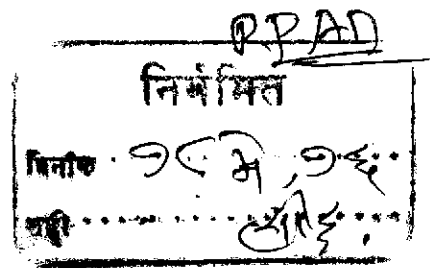 RPAD
निर्गमित
दिनांक १८ मे, १६
सही